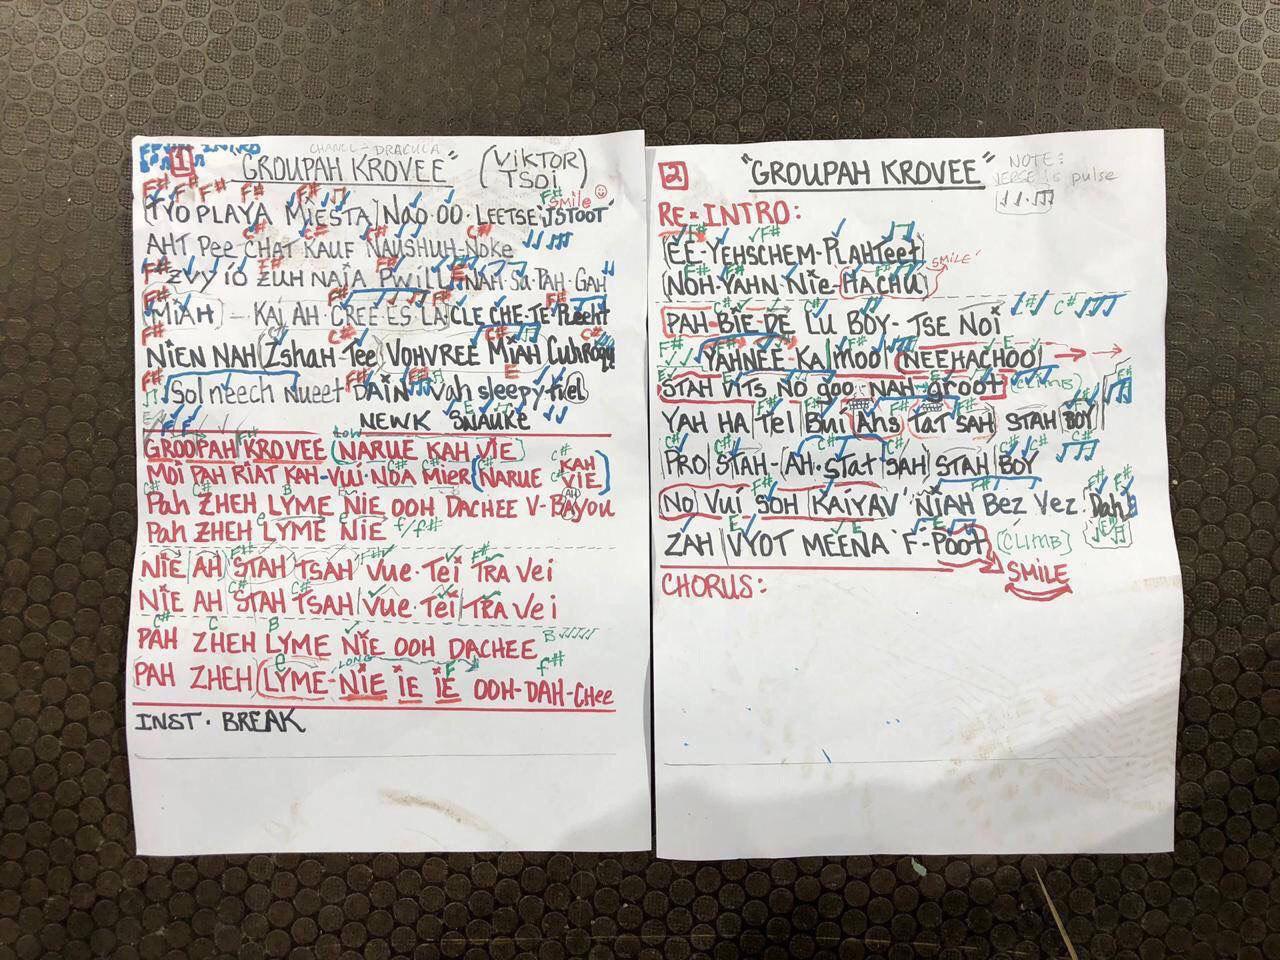 1
"GROUPAH KROVEE" (VIKTOR TSOI)
TYO PLAYA MIESTA NAO·OO·LEETSE'JSTOOT SMILE
AHT Pee-CHAT KAUF NAUSHUH-NOKE
ZVY IO ZUH NAIA PWILL NAH-Su-PAH-GAH
MIAH — KAI AH CREE ES LA CLE CHE-TE PLECHT
NIEN NAH ZshaH Tee VOHVREE MIAH
Sol neech Nueet DAIN Vah sleepy tiel
NEWK SNAUKE
GROOPAH KROVEE (NARUE KAH VIE
MOI PAH RIAT KAH-VUI-NOA MIER (NARUE KAH VIE)
Pah ZHEH LYME NIE OOH DACHEE V-BAYOU
Pah ZHEH LYME NIE f/f#
NIE AH STAH TSAH VUE·TEI TRA VEI
NIE AH STAH TSAH VUE·TEI TRA VEI
PAH ZHEH LYME NIE OOH DACHEE
PAH ZHEH (LYME-NIE IE IE OOH-DAH-CHEE
INST·BREAK
2
"GROUPAH KROVEE"
NOTE:
VERSE is pulse
RE-INTRO:
EE-YEHSCHEM-PLAHTEET
NOH-YAHN-NIE-HACHU SMILE
PAH-BIE-DE LU BOY-TSE NOI
YAHNEE-KA MOO (NEEHACHOO)
STAH VITS NO goo NAH-groot (CLIMB)
YAH HA TEL BUI AHS TAT SAH STAH BOY
PRO STAH-AH·STAT SAH STAH BOY
NO VUI SOH KAIYAV' NIAH BEZ VEZ Dah
ZAH VYOT MEENA'F-POOT (CLIMB)
SMILE
CHORUS: